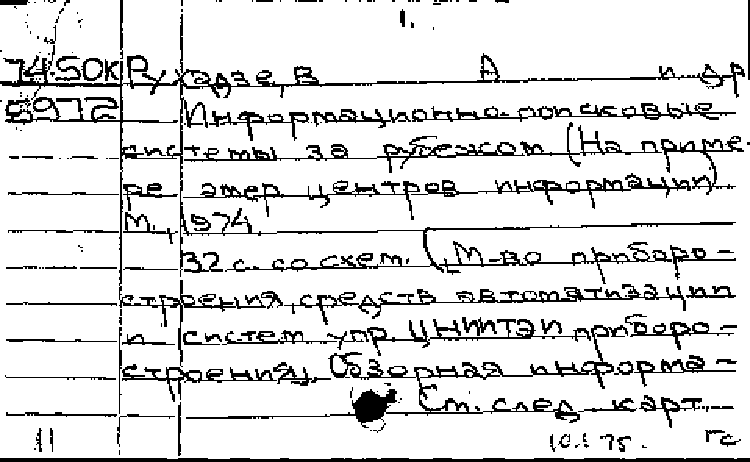 1.
74-50К Рухадзе, В А и др
5972 Информационно-поисковые
системы за рубежом (На приме-
ре амер центров информации)
М., 1974.
32 с. со схем. (М-во приборо-
строения, средств автоматизации
и систем упр. ЦНИИТЭИ приборо-
строения). Обзорная информа-
См. след. карт.
11 10.1 75. гс